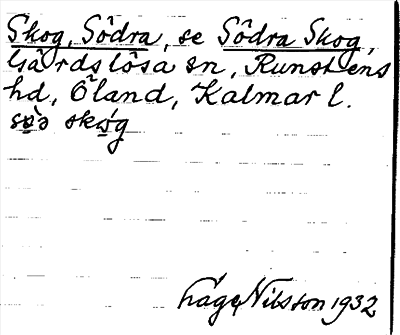 Skog, Södra, se Södra Skog,
Gårdslösa sn, Runstens
hd, Öland, Kalmar l.
skog
Nilsson 1932